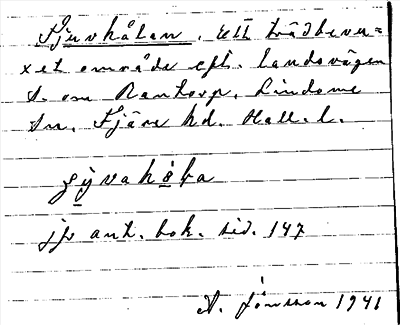 Tjuvhålan. Ett trädbevu=
xet område eft. landsvägen
S. om Ranntorp. Lindome
sn. Fjäre hd. Hall. l.
jfr ant. bok. sid. 147
A. Jönsson 1941